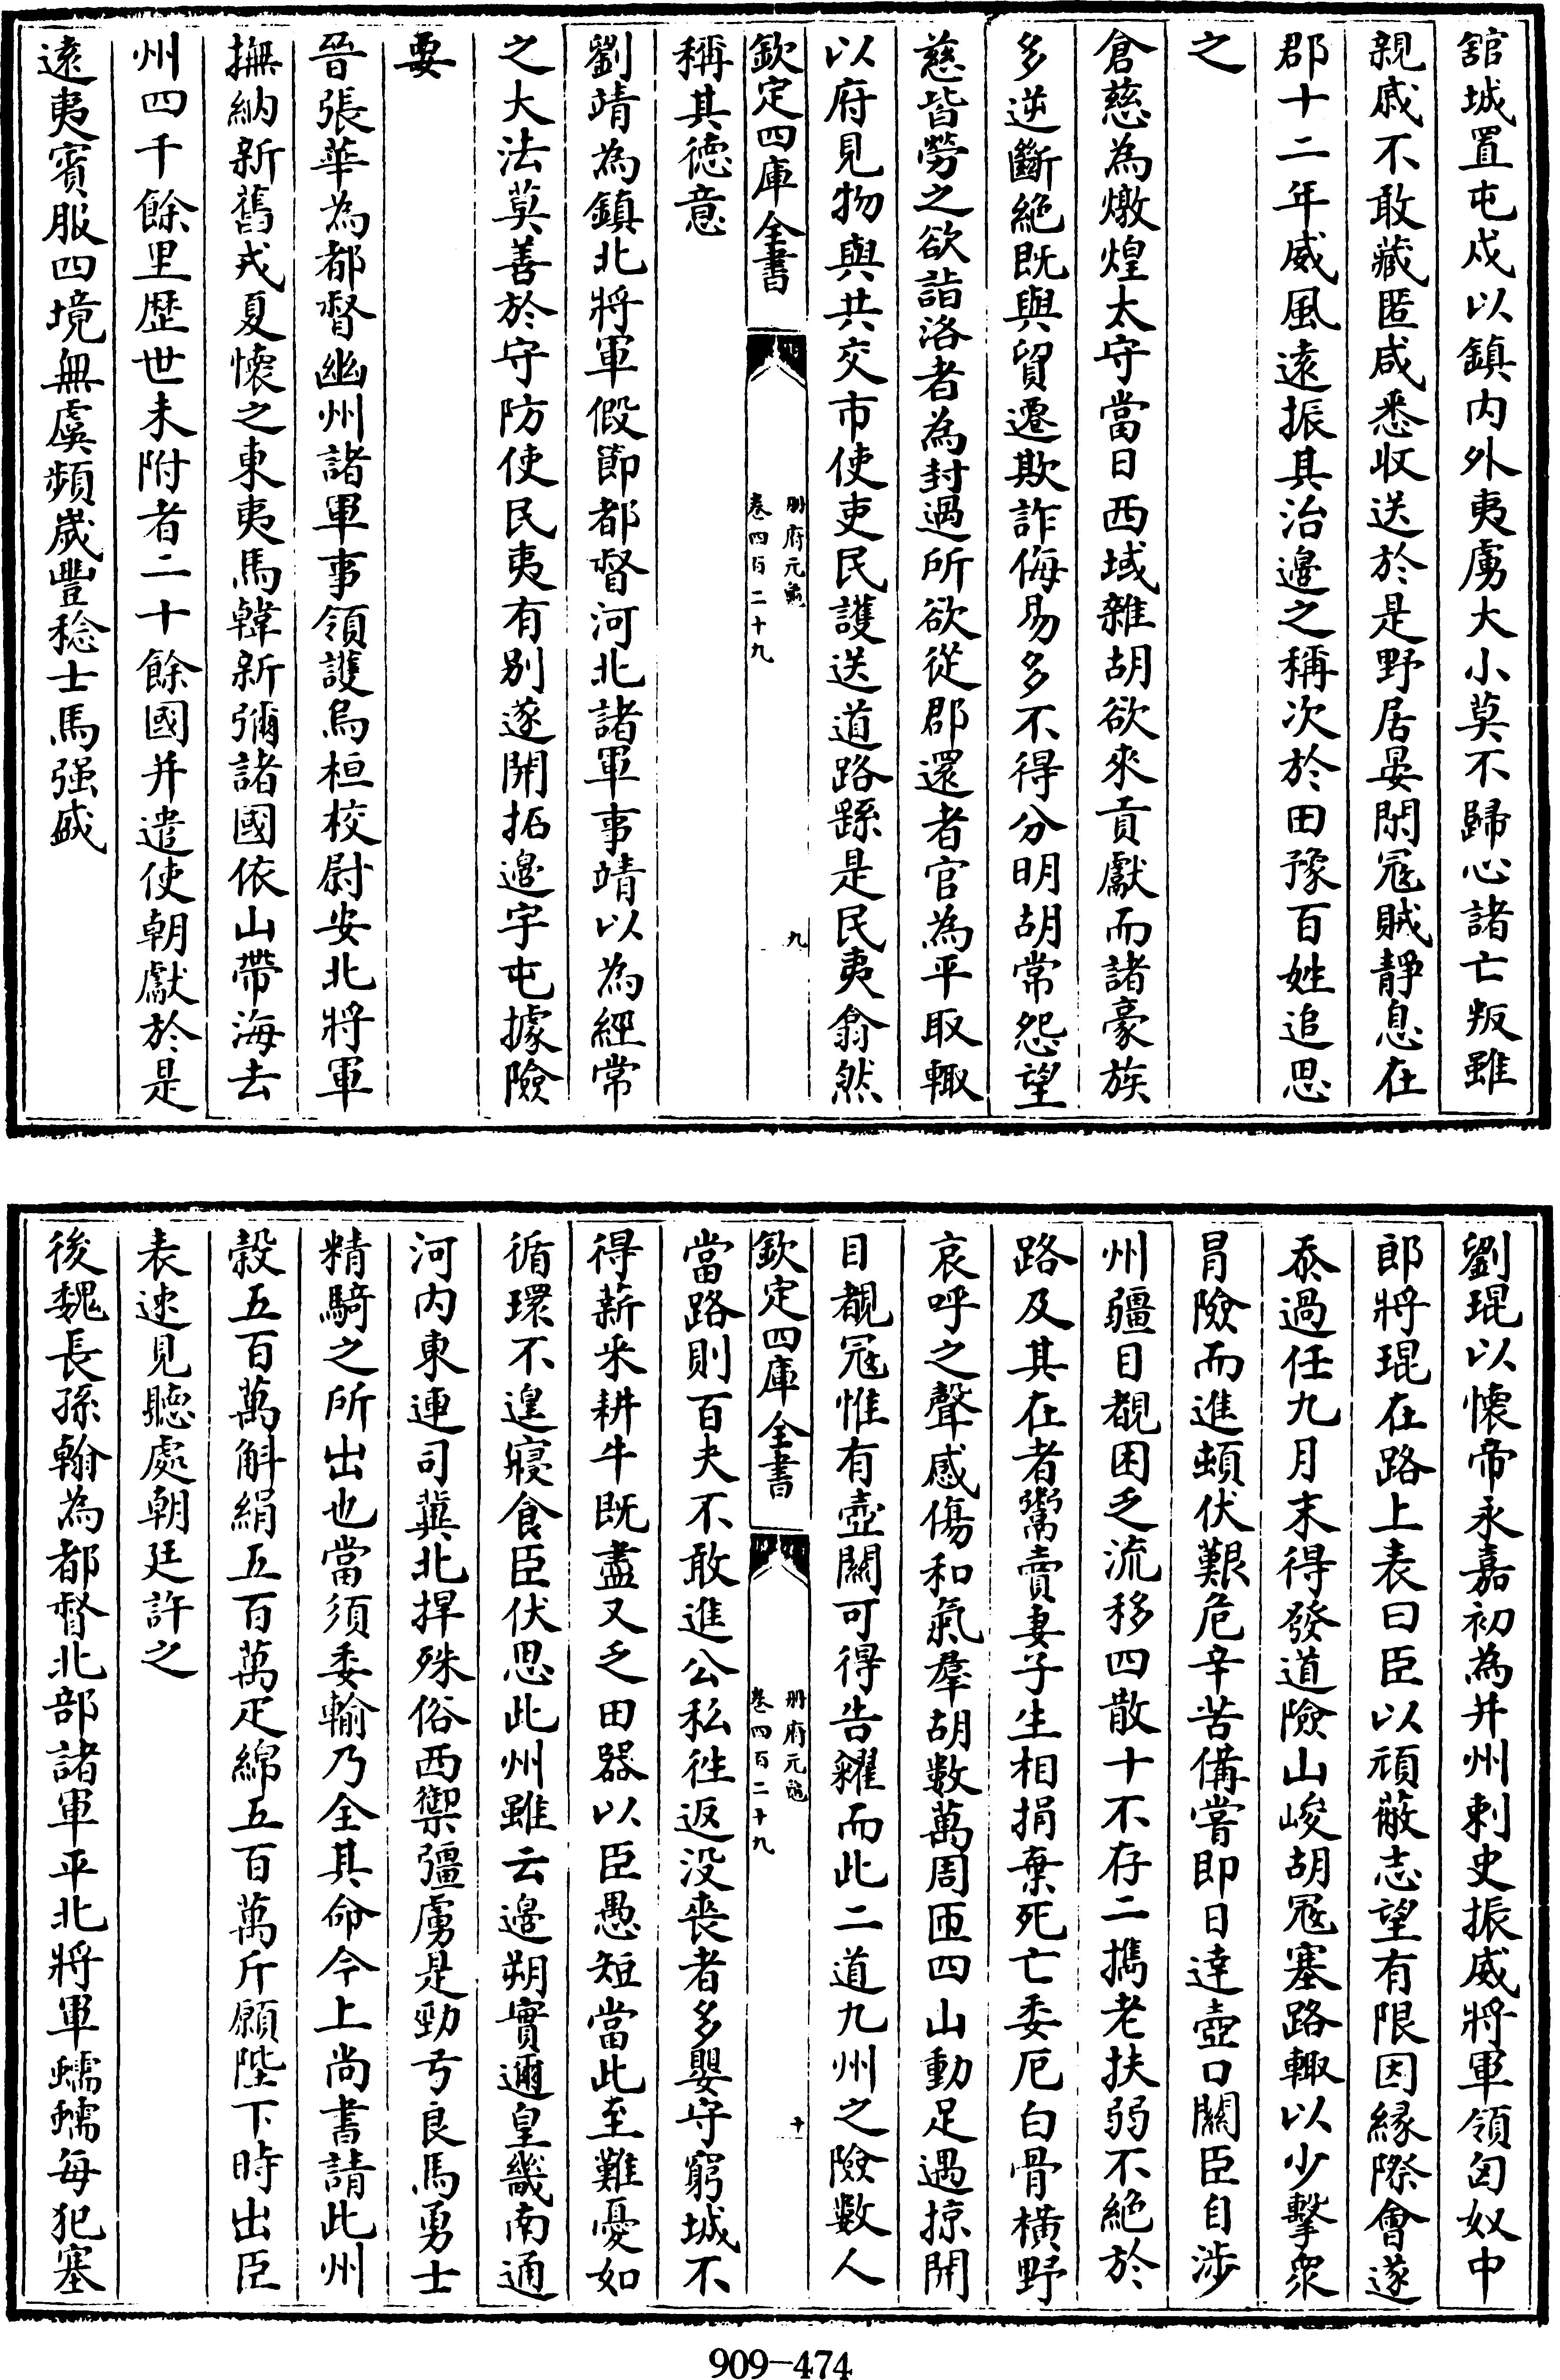 舘城置屯戍以鎮内外夷虜大小莫不歸心諸亡叛雖
親戚不敢藏匿咸悉收送於是野居晏閑冦賊靜息在
郡十二年威風逺振其治邉之稱次於田豫百姓追思
之
倉慈為燉煌太守當日西域雜胡欲來貢獻而諸豪族
多逆斷絶既與貿遷欺詐侮易多不得分明胡常怨望
慈皆勞之欲詣洛者為封過所欲從郡還者官為平取輙
以府見物與共交市使吏民護送道路繇是民夷翕然
稱其徳意
欽定四庫全書
册府元龜
卷四百二十九
九
劉靖為鎮北将軍假節都督河北諸軍事靖以為經常
之大法莫善於守防使民夷有别遂開拓邉宇屯據險
要
晉張華為都督幽州諸軍事領護烏桓校尉安北将軍
撫納新舊戎夏懷之東夷馬韓新彌諸國依山帶海去
州四千餘里歴世未附者二十餘國并遣使朝獻於是
逺夷賓服四境無虞頻嵗豐稔士馬强盛
劉琨以懐帝永嘉初為并州刺史振威将軍領匈奴中
郎將琨在路上表曰臣以頑蔽志望有限因縁際會遂
忝過任九月末得發道險山峻胡冦塞路輙以少擊衆
冐險而進頓伏艱危辛苦備嘗即日達壺口關臣自涉
州疆目覩困乏流移四散十不存二擕老扶弱不絶於
路及其在者鬻賣妻子生相捐棄死亡委厄白骨橫野
哀呼之聲感傷和氣羣胡數萬周匝四山動足遇掠開
目覩冦惟有壺關可得告糴而此二道九州之險數人
欽定四庫全書
册府元龜
卷四百二十九
十
當路則百夫不敢進公私徃返没喪者多嬰守窮城不
得薪采耕牛既盡又乏田器以臣愚短當此至難憂如
循環不遑寢食臣伏思此州雖云邉朔實邇皇畿南通
河内東連司冀北捍殊俗西禦彊虜是勁弓良馬勇士
精騎之所出也當須委輸乃全其命今上尚書請此州
榖五百萬斛絹五百萬疋綿五百萬斤願陛下時出臣
表速見聽處朝廷許之
後魏長孫翰為都督北部諸軍平北将軍蠕蠕每犯塞
909-474